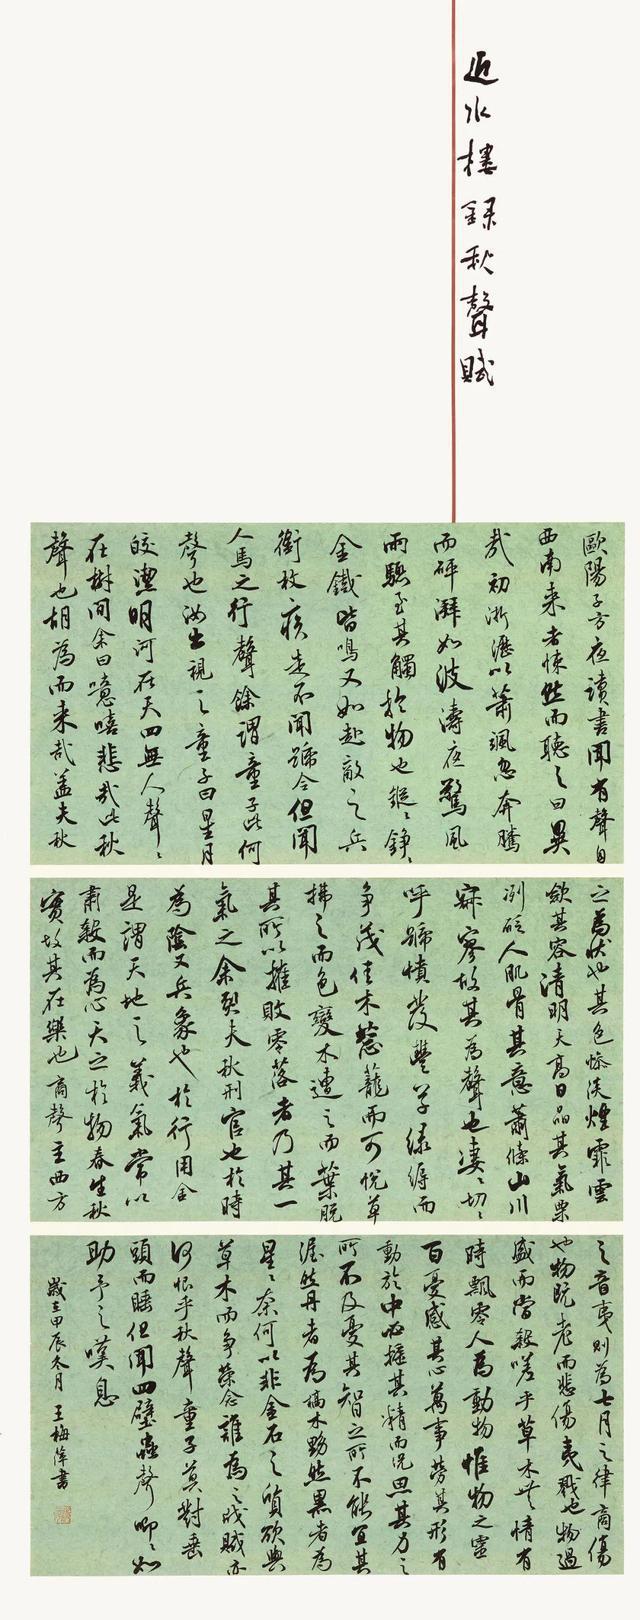 近水樓録秋聲賦
歐陽子方夜讀書聞有聲自
西南來者悚然而聽之曰異
哉初淅瀝以蕭颯忽奔騰
而砰湃如波濤夜驚風
雨驟至其觸於物也鏦〻錚〻
金鐵皆鳴又如赴敵之兵
銜枚疾走不聞號令但聞
人馬之行聲餘謂童子此何
聲也汝出視之童子曰星月
皎潔明河在天四無人聲〻
在樹間余曰噫嘻悲哉此秋
聲也胡為而來哉蓋夫秋
之為狀也其色慘淡煙霏雲
斂其容清明天高日晶其氣栗
冽砭人肌骨其意蕭條山川
寂寥故其為聲也淒〻切〻
呼號憤發豐草綠縟而
争茂佳木蔥蘢而可悅草
拂之而色變木遭之而葉脫
其所以摧敗零落者乃其一
氣之余烈夫秋刑官也於時
為陰又兵象也於行用金
是謂天地之義氣常以
肅殺而為心天之於物春生秋
實故其在樂也商聲主西方
之音夷則為七月之律商傷
也物既老而悲傷夷戮也物過
盛而當殺嗟乎草木無情有
時飄零人為動物惟物之靈
百憂感其心萬事勞其形有
動於中必搖其精而況思其力之
所不及憂其智之所不能宜其
渥然丹者為槁木黟然黑者為
星〻奈何以非金石之質欲與
草木而争榮念誰為之戕賊亦
何恨乎秋聲童子莫對垂
頭而睡但聞四壁蟲聲唧〻如
助予之嘆息
歲在甲辰冬月 王梅萍書